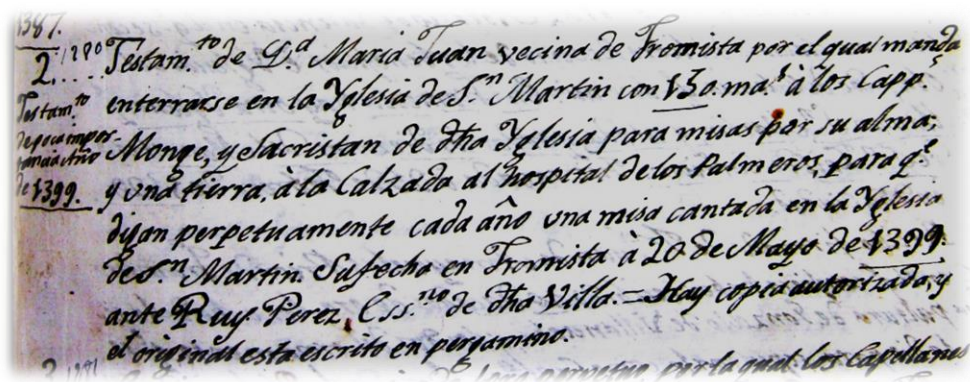 1387.
2....1280
Testam.to
de poca impor-
tancia Año
de 1399.
Testam.to de D.a Maria Juan vecina de Fromista por el qual manda
enterrarse en la Yglesia de S.n Martin con 130. ma.s à los Capp.s
Monge, y Sacristan de dha Yglesia para misas por su alma;
y una tierra, à la Calzada al hospital de los Palmeros, para q.e
digan perpetuamente cada año una misa cantada en la Yglesia
de S.n Martin. Su fecha en Fromista à 20 de Mayo de 1399.
ante Ruy Perez, Ess.no de dha Villa. = Hay copia autorizada, y
el original esta escrito en pergamino.
perpetuo, por la qual los Capellanes